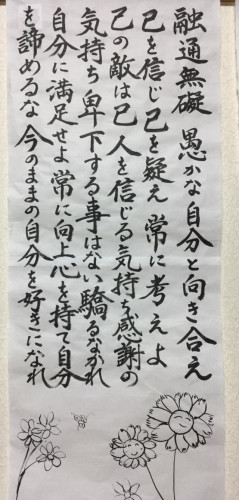 融通無礙 愚かな自分と向き合え
己を信じ己を疑え 常に考えよ
己の敵は己 人を信じる気持ち 感謝の
気持ち 卑下する事はない 驕るなかれ
自分に満足せよ 常に向上心を持て 自分
を諦めるな 今のままの自分を好きになれ